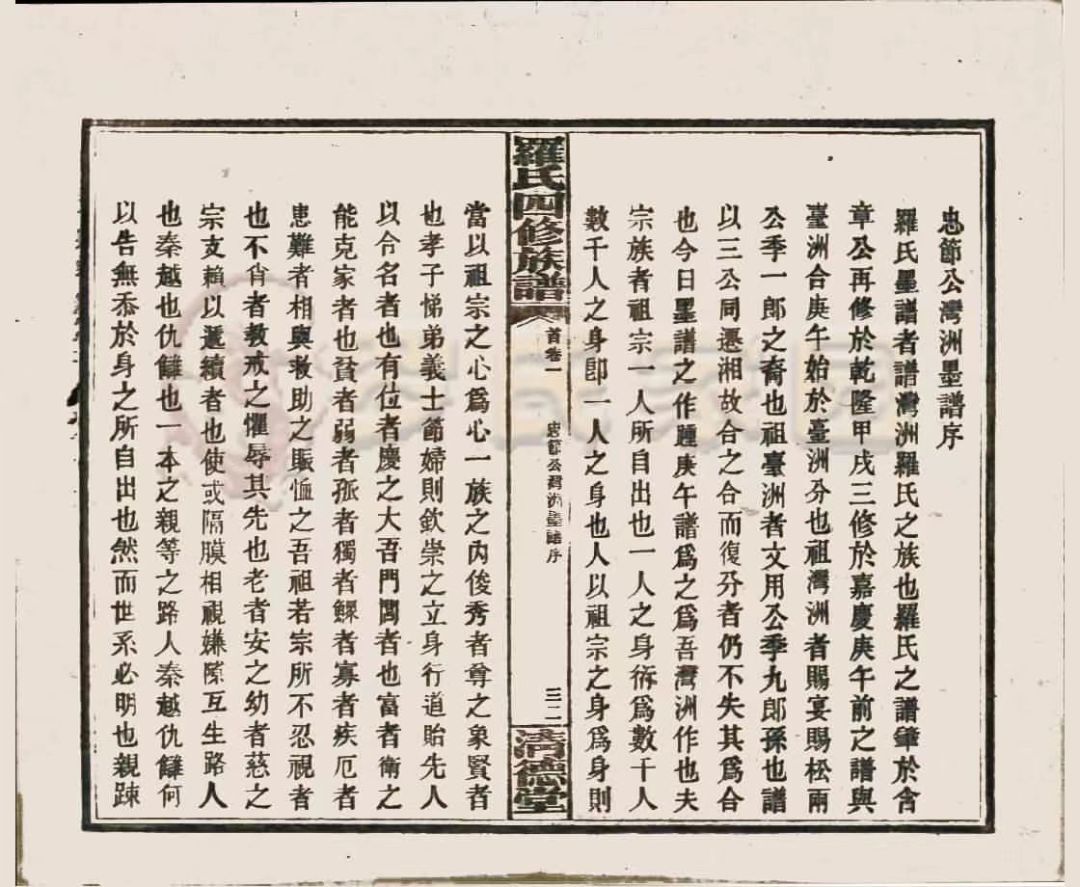 忠節公灣洲墨譜序
羅氏墨譜者譜灣洲羅氏之族也羅氏之譜肇於含
章公再修於乾隆甲戌三修於嘉慶庚午前之譜與
臺洲合庚午始於臺洲分也祖灣洲者賜宴賜松兩
公季一郎之裔也祖臺洲者文用公季九郎孫也譜
以三公同遷湘故合之合而復分者仍不失其爲合
也今日墨譜之作踵庚午譜爲之爲吾灣洲作也夫
宗族者祖宗一人所自出也一人之身析爲數千人
數千人之身卽一人之身也人以祖宗之身爲身則
羅氏四修族譜
首卷一
忠節公灣洲墨譜序
三二
德堂
當以祖宗之心爲心一族之內俊秀者尊之象賢者
也孝子悌弟義士節婦則欽崇之立身行道貽先人
以令名者也有位者慶之大吾門閭者也富者衛之
能克家者也貧者弱者孤者獨者鰥者寡者疾厄者
患難者相與救助之賑恤之吾祖若宗所不忍視者
也不肖者敎戒之懼辱其先也老者安之幼者慈之
宗支賴以遞續者也使或隔膜相視嫌隙互生路人
也秦越也仇讎也一本之親等之路人秦越仇讎何
以告無忝於身之所自出也然而世系必明也親踈